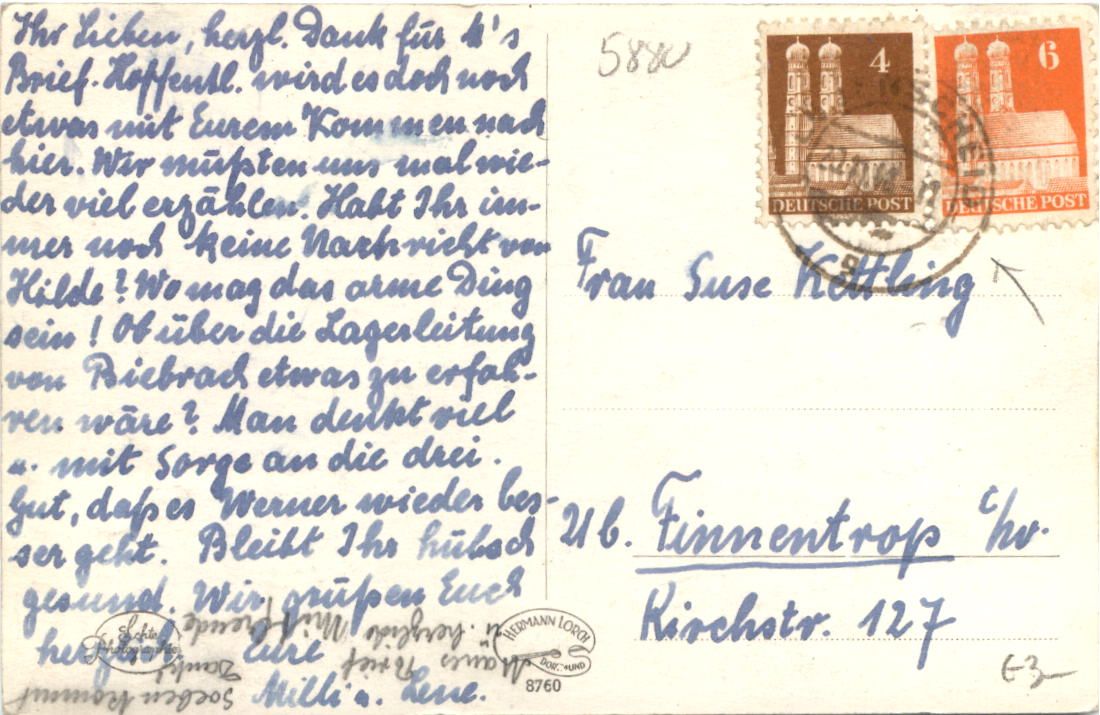 Ihr Lieben, herzl. Dank für K's
Brief. Hoffentl. wird es doch noch
etwas mit Eurem Kommen nach
hier. Wir müßten uns mal wie-
der viel erzählen. Habt Ihr im-
mer noch keine Nachricht von
Hilde? Wo mag das arme Ding
sein! Ob über die Lagerleitung
von Biebrach etwas zu erfah-
ren wäre? Man denkt viel
u. mit Sorge an die drei.
Gut, daß es Werner wieder bes-
ser geht. Bleibt Ihr hübsch
gesund. Wir grüßen Euch
herzlich. Eure
Milli u. Lene.
soeben kommt
Brief
Danke
u. herzliche Mitfreude
Echte
Photographie
HERMANN LORCH
DORTMUND
8760
5880
4
DEUTSCHE POST
6
DEUTSCHE POST
Frau Suse Kettling
Üb. Finnentrop c/o.
Kirchstr. 127